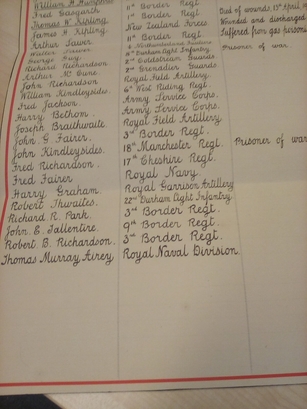 William H
Fred Gasgarth 1st Border Regt.
Thomas W. Kipling New Zealand Forces
James H Kipling 11th Border Regt.
Arthur Sawer
Durham Light Infantry Prisoner of war
George Guy 2nd Coldstream Guards.
Richard Richardson 2nd Grenadier Guards
Arthur Mc Cune Royal Field Artillery.
John Richardson 6th West Riding Regt.
William Kindleysides. Army Service Corps.
Fred Jackson. Army Service Corps.
Harry Bethom. Royal Field Artillery
Joseph Braithwaite. 3rd Border Regt.
John. G. Fairer. 18th Manchester Regt. Prisoner of war
John Kindleysides. 17th Cheshire Regt.
Fred Richardson. Royal Navy.
Fred Fairer Royal Garrison Artillery
Harry Graham 22nd Durham Light Infantry
Robert Thwaites. 3rd Border Regt.
Richard R. Park. 9th Border Regt.
John. E. Sallentire. 3rd Border Regt.
Robert. B. Richardson. Royal Naval Division.
Thomas Murray Airey